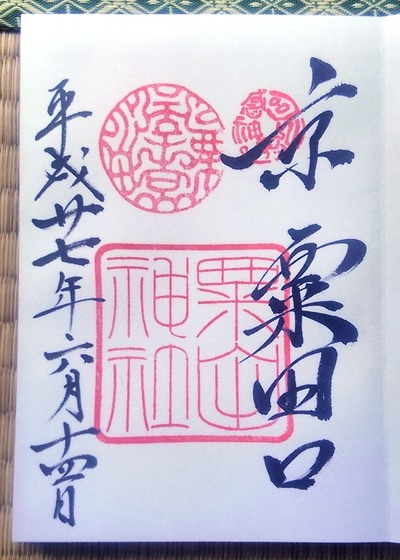 京 粟田口
粟田
神社
平成廿七年六月十四日